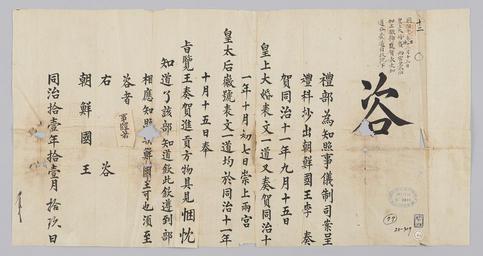 咨
禮部為知照事儀制司案呈
禮科抄出朝鮮國王李 奏
賀同治十一年九月十五日
皇上大婚表文一道又奏賀同治十
一年十月初七日崇上兩宮
皇太后徽號表文一道均於同治十一年
十月十五日奉
旨覽王奏賀進貢方物具見悃忱
知道了該部知道欽此欽遵到部
相應知照朝鮮國王可也須至
咨者
右 咨
朝鮮國王
同治拾壹年拾壹月 拾玖 日